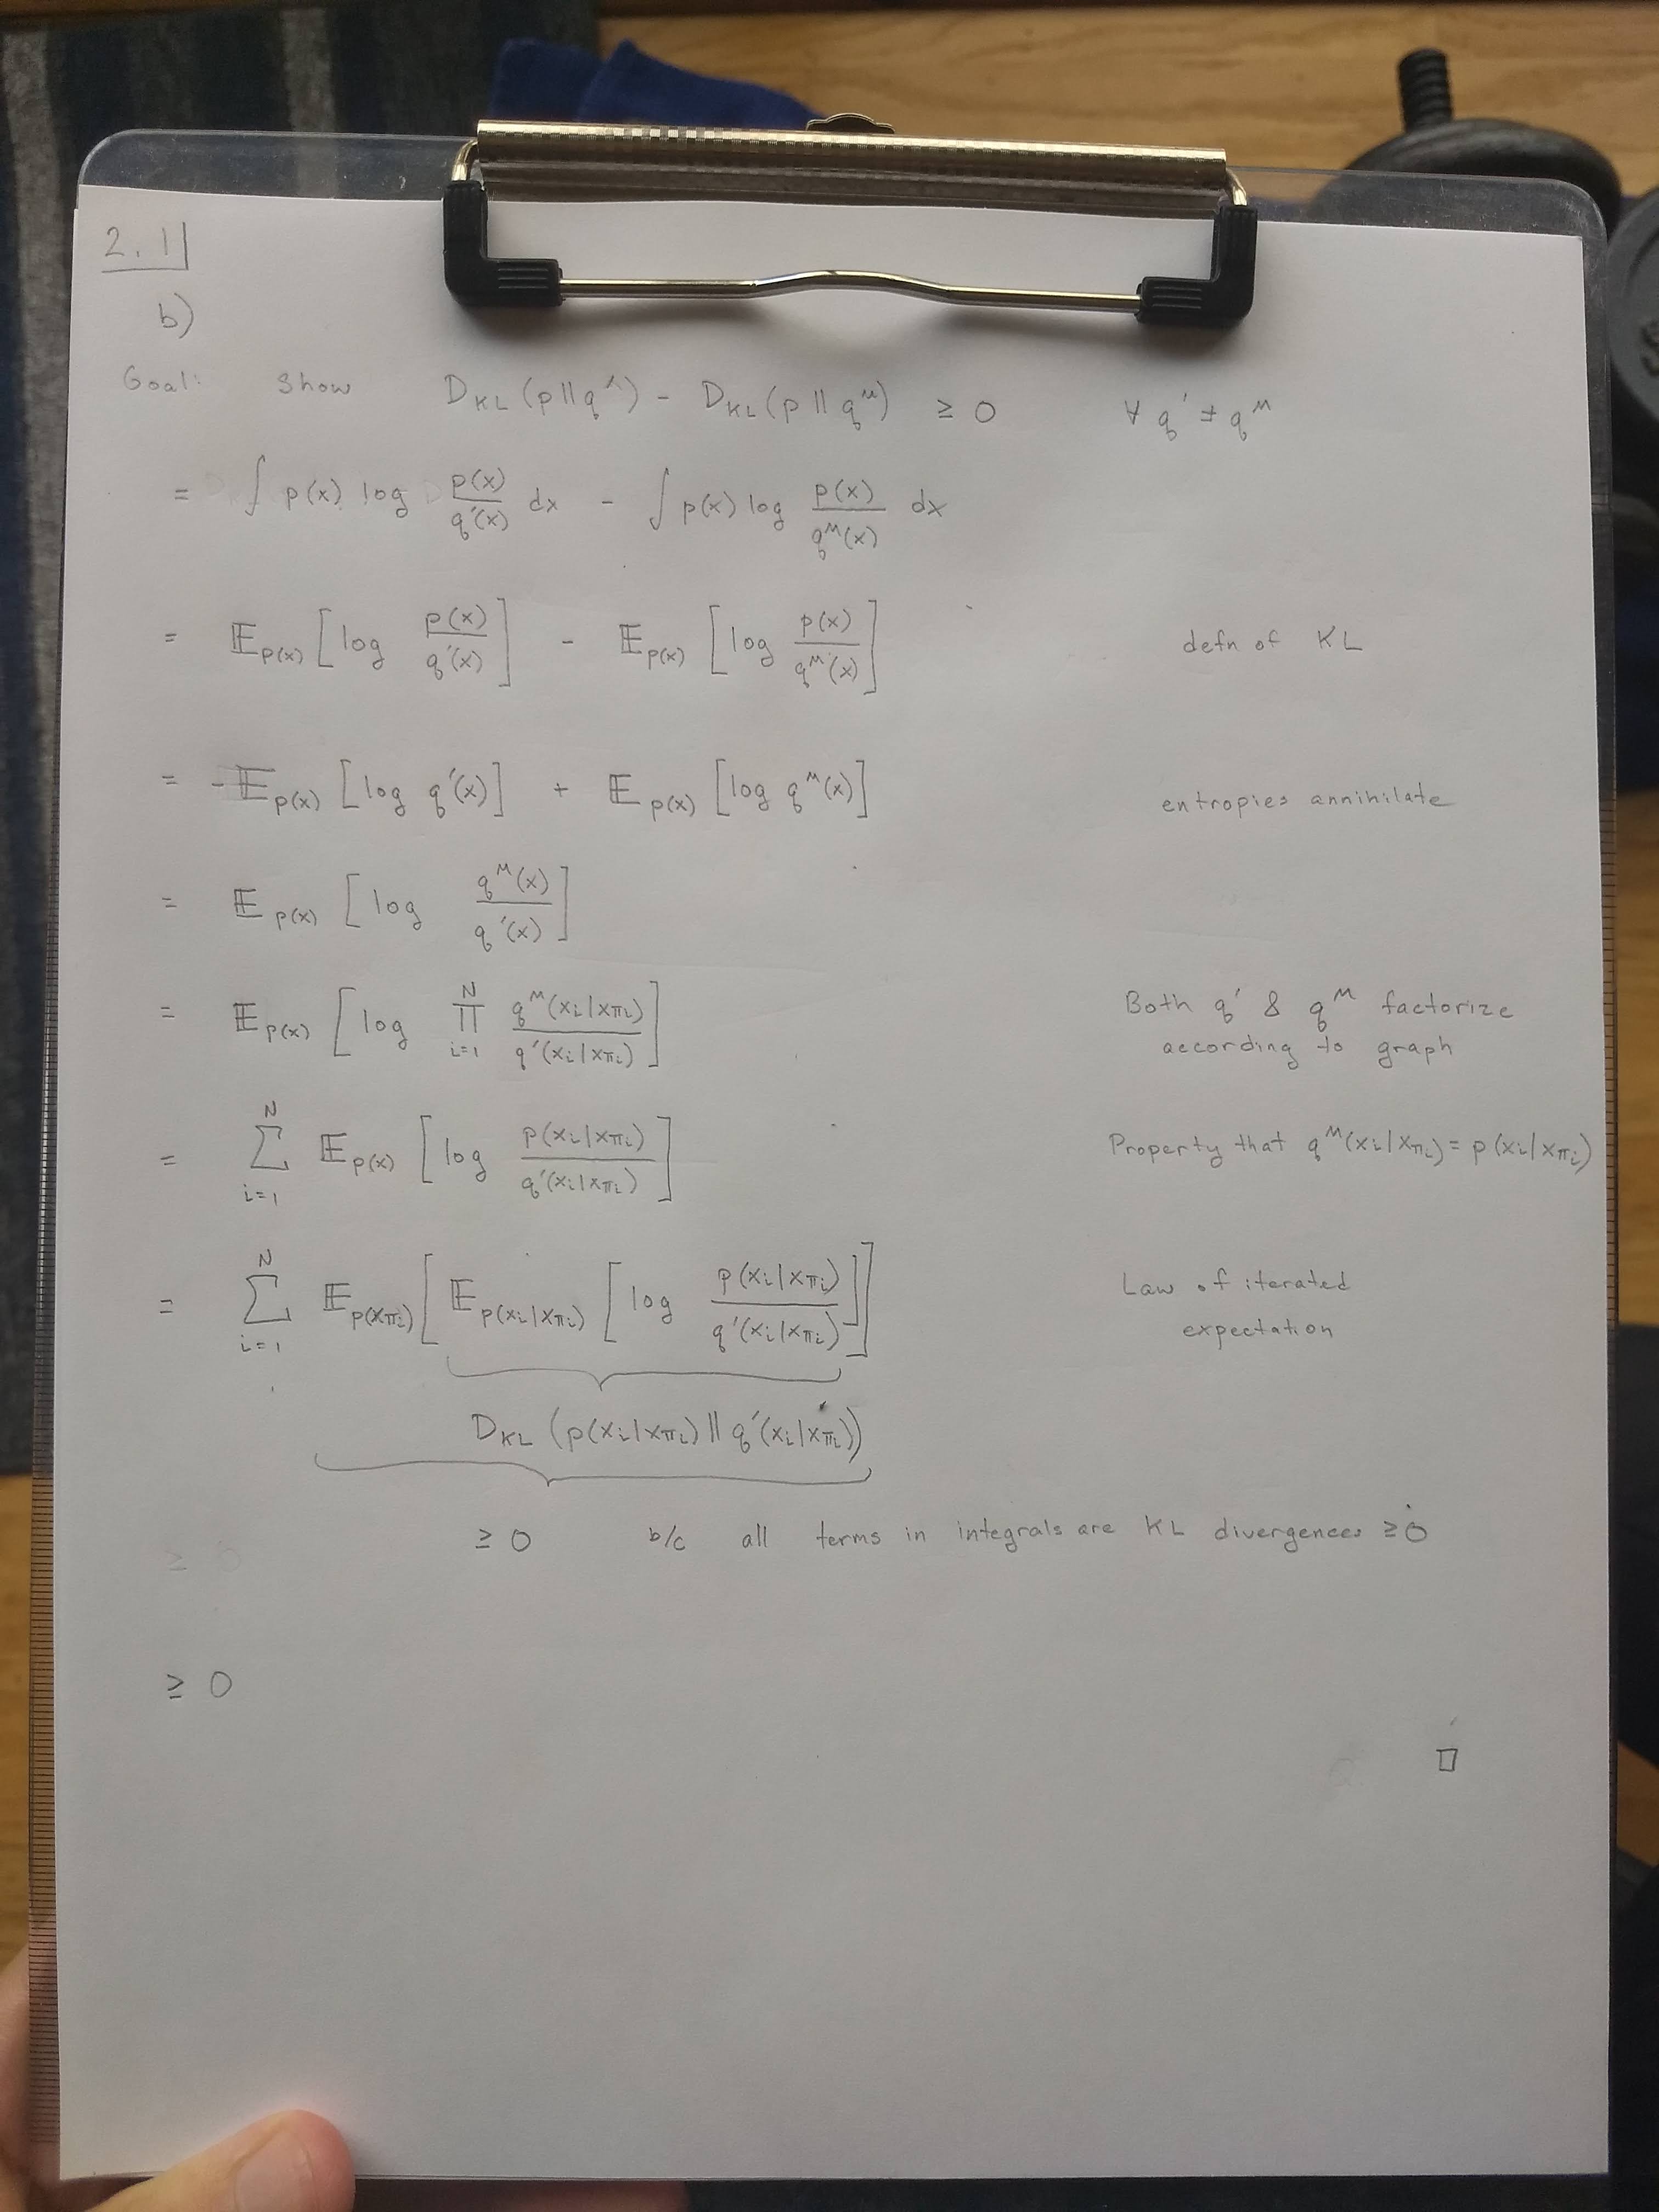 2.1
b)
Goal: Show D_KL(p||q′) − D_KL(p||q^M) ≥ 0 ∀ q′ ≠ q^M
= ∫ p(x) log p(x)/q′(x) dx − ∫ p(x) log p(x)/q^M(x) dx
= 𝔼_p(x) [log p(x)/q′(x)] − 𝔼_p(x) [log p(x)/q^M(x)] defn of KL
= −𝔼_p(x) [log q′(x)] + 𝔼_p(x) [log q^M(x)] entropies annihilate
= 𝔼_p(x) [log q^M(x)/q′(x)]
= 𝔼_p(x) [log ∏_{i=1}^N q^M(x_i|x_πi)/q′(x_i|x_πi)] Both q′ & q^M factorize
according to graph
= ∑_{i=1}^N 𝔼_p(x) [log p(x_i|x_πi)/q′(x_i|x_πi)] Property that q^M(x_i|x_πi) = p(x_i|x_πi)
= ∑_{i=1}^N 𝔼_p(x_πi) [𝔼_p(x_i|x_πi) [log p(x_i|x_πi)/q′(x_i|x_πi)]] Law of iterated
expectation
D_KL (p(x_i|x_πi) || q′(x_i|x_πi))
≥ 0 b/c all terms in integrals are KL divergences ≥ 0
≥ 0
□